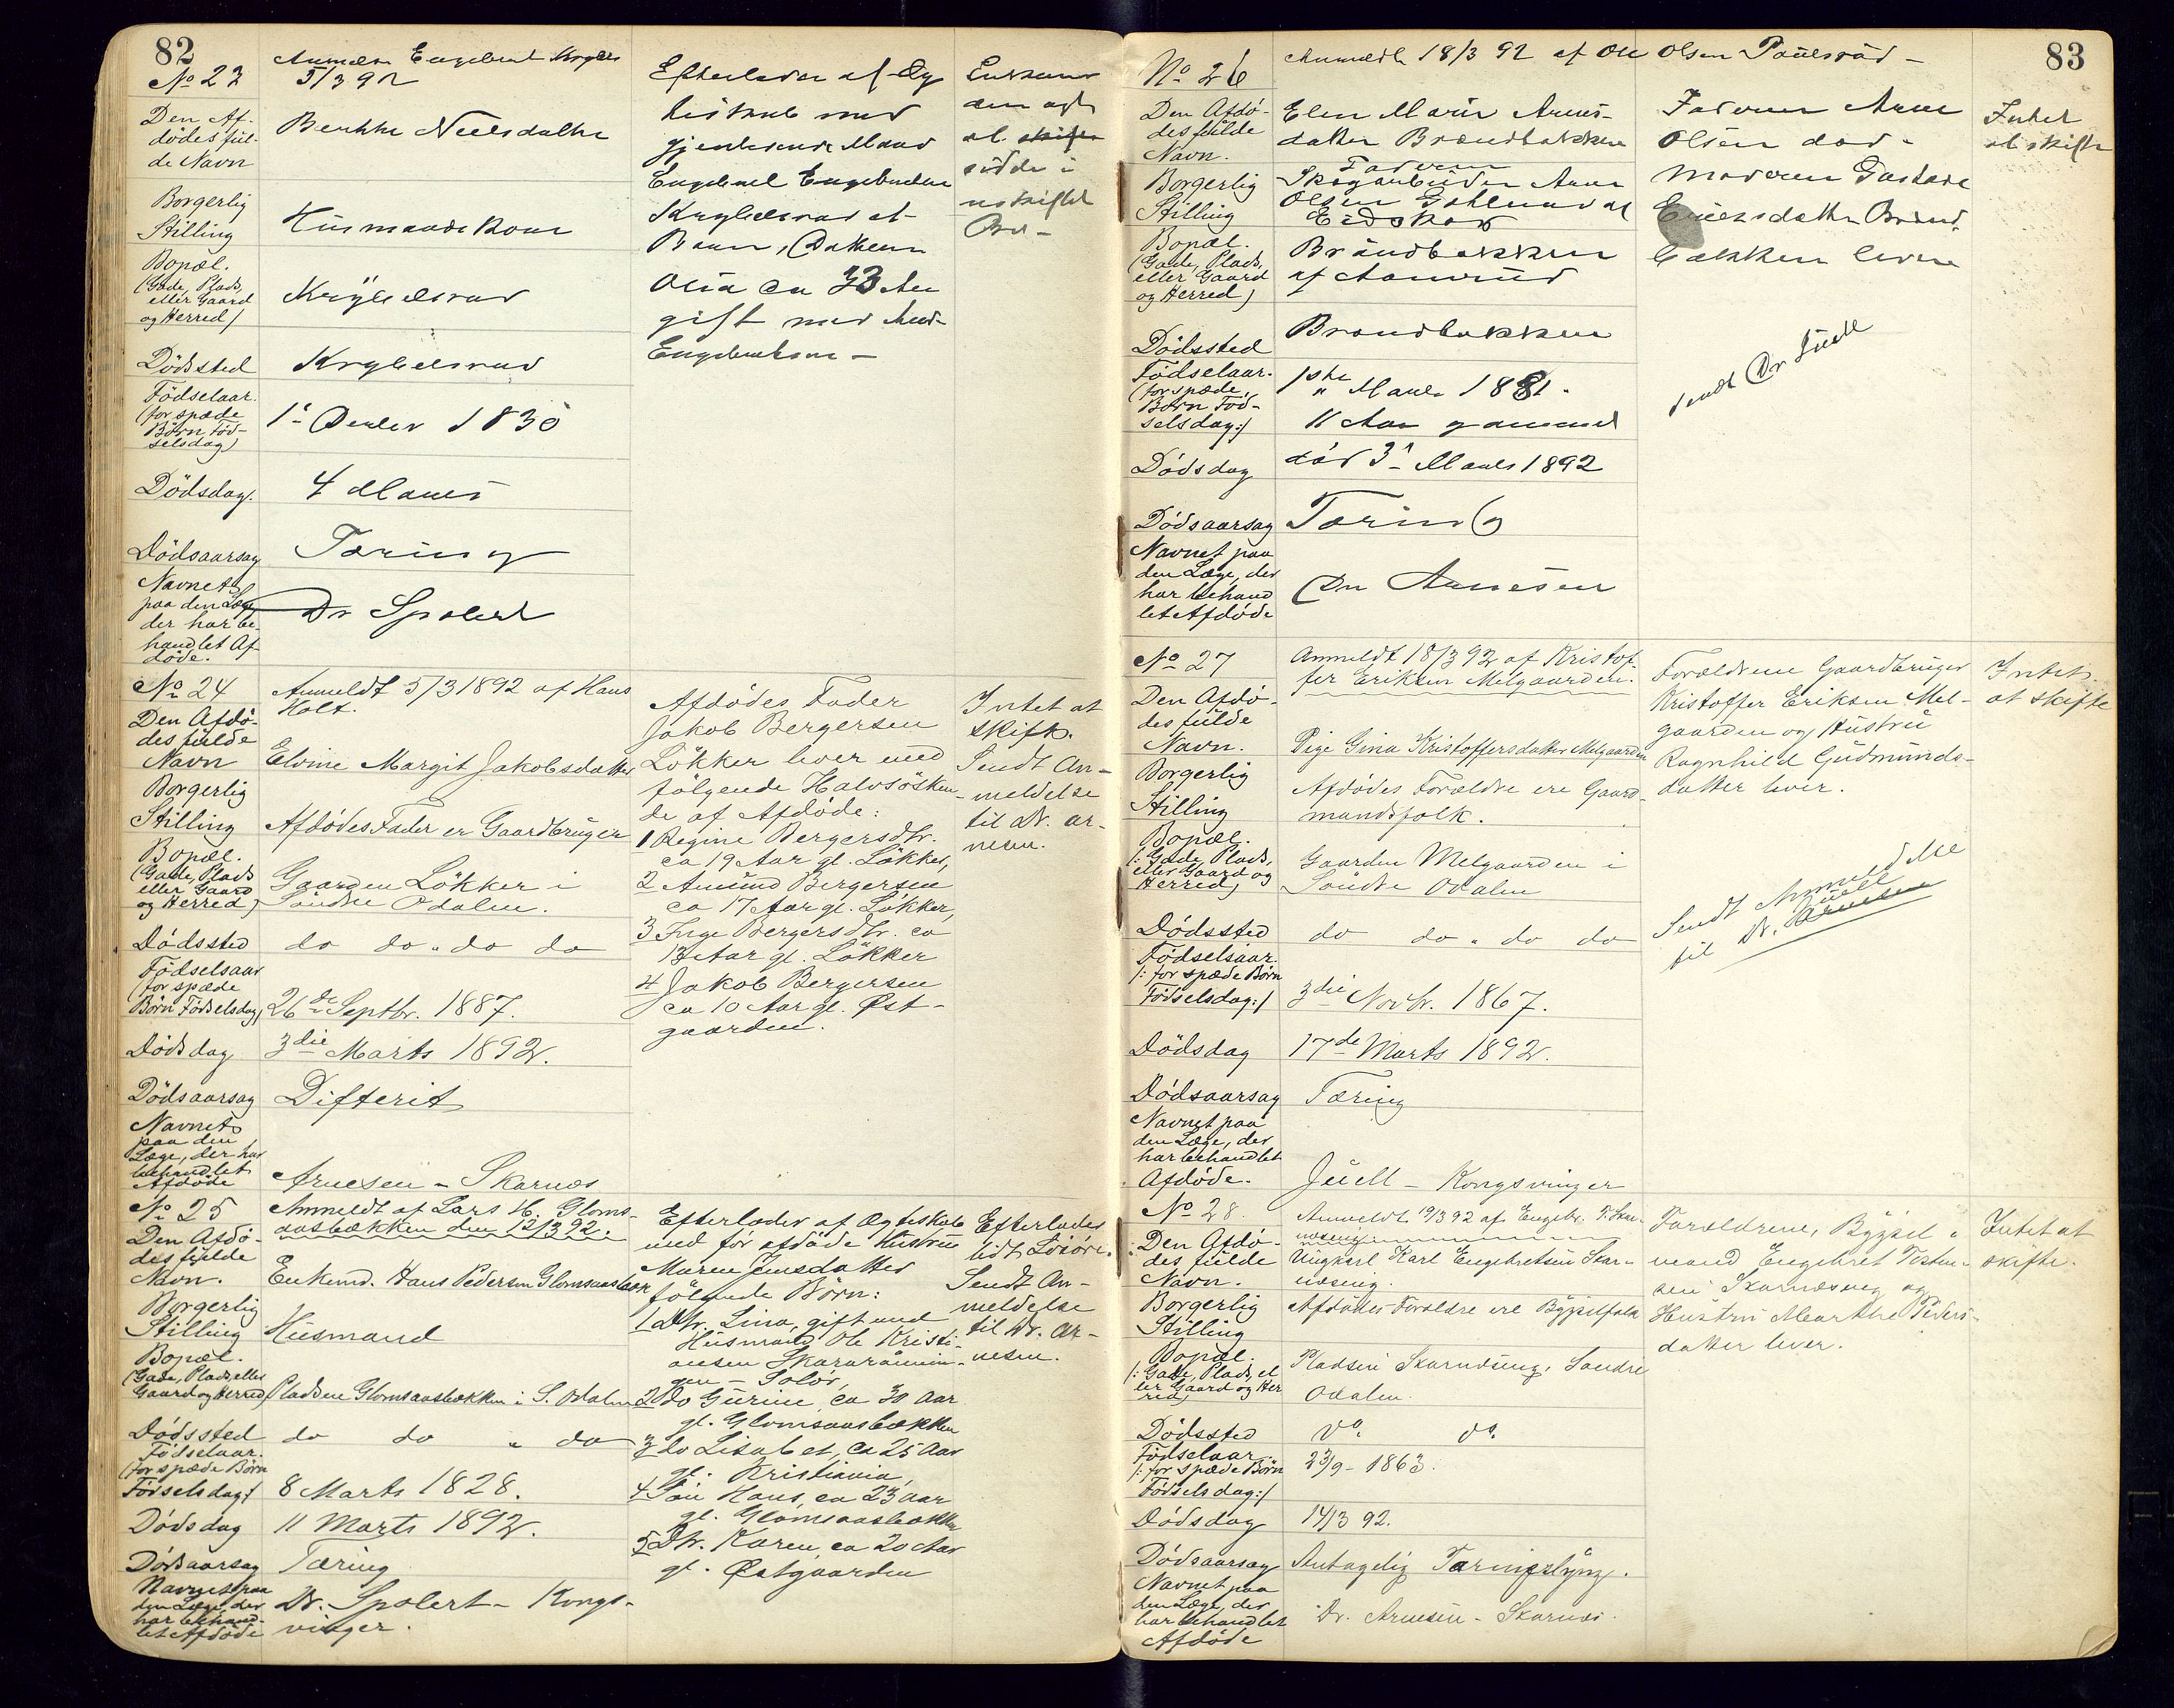 82
No 23
Anmeldt Engebret Krybels
5/3 92
Den Af-
dødes ful-
de Navn
Berthe Neelsdatter
Borgerlig
Stilling
Husmandskone
Bopæl.
(Gade, Plads,
eller Gaard
og Herred)
Krybelsrud
Dödssted
Krybelsrud
Födselaar.
(for spæde
Börn Föd-
selsdag)
1 Decbr 1830
Dödsdag.
4 Marts
Dödsaarsag
Tæring
Navnet
paa den Læge
der har be-
handlet Af-
døde.
Dr Spolert
Efterlader af Æg-
teskab med
gjenlevende Mand
Engebret Engebretsen
Krybelsrud et
Barn, Datteren
Olia ca 33 Aar
gift med And-
Engebretsen -
sidde i
uskiftet
Bo -
No 24
Anmeldt 5/3 1892 af Hans
Holt.
Den Afdö-
des fulde
Navn
Elvine Margit Jakobsdatter
Borgerlig
Stilling
Afdödes Fader er Gaardbruger
Bopæl.
(Gade, Plads
eller Gaard
og Herred)
Gaarden Lökker i
Söndre Odalen.
Dödssted
do do " do do
Födselsaar
(for spæde
Börn Födselsdag)
26de Septbr. 1887.
Dödsdag
3die Marts 1892.
Dödsaarsag
Difterit
Navnet
paa den
Læge, der har
behandlet
Afdöde
Arnesen - Skarnes
Afdödes Fader
Jakob Bergersen
Lökker lever med
fölgende Halvsösken-
de af Afdöde:
1 Regine Bergersdtr.
ca 19 Aar gl. Lökker,
2 Amund Bergersen
ca 17 Aar gl. Lökker,
3 Inge Bergersdtr. ca
13 Aar gl. Lökker
4 Jakob Bergersen
ca 10 Aar gl. Øst-
gaarden.
Intet at
skifte.
Sendt An-
meldelse
til Dr. Ar-
nesen.
No 25
Anmeldt af Lars H. Gloms-
aasbækken den 12/3 92.
Den Afdö-
des fulde
Navn.
Enkemd. Hans Pedersen Glomsaasbækk
Borgerlig
Stilling
Husmand
Bopæl.
(Gade, Plads eller
Gaard og Herred)
Pladsen Glomsaasbækken i S. Odalen
Dödssted
do do " do
Födselaar.
(for spæde Börn
Födselsdag)
8 Marts 1828.
Dödsdag
11 Marts 1892.
Dödsaarsag
Tæring
Navnet paa
den Læge, der
har behand-
let Afdöde
Dr. Spolert - Kongs-
vinger.
Efterlader af Ægteskab
med før afdöde Hustru
Maren Jensdatter
fölgende Börn:
1 Dtr. Lina, gift med
Husmand Ole Kristi-
ansen Skararåmin-
gen - Solör,
2 do Gurine, ca 30 Aar
gl. Glomsaasbækken
3 do Lisabet, ca 25 Aar
gl. Kristiania,
4 Sön Hans, ca 23 Aar
gl. Glomsaasbækken
5 Dtr. Karen, ca 20 Aar
gl. Østgaarden
Efterlader
lidt Lösöre.
Sendt An-
meldelse
til Dr. Ar-
nesen.
83
No 26
Anmeldt 18/3 92 af Ole Olsen Paulsrud -
Den Afdö-
des fulde
Navn.
Elen Marie Arnes-
datter Brandbakken
Borgerlig
Stilling
Faderen
Skogarbeider Arne
Olsen af
Eidskog
Bopæl.
(Gade, Plads,
eller Gaard
og Herred)
Brandbakken
Dödssted
Brandbakken
Födselaar.
(for spæde
Börn Föd-
selsdag:)
1ste Marts 1881.
11 Aar gammel
Dödsdag
död 3 Marts 1892
Dödsaarsag
Tæring
Navnet paa
den Læge, der
har behand
let Afdöde
Dr Arnesen
Faderen Arne
Olsen død -
Moderen Gustava
Brand-
bakken lever
Intet
at skifte
sendt Dr Juell
No 27
Anmeldt 18/3 92 af Kristof-
fer Eriksen Melgaarden.
Den Afdö-
des fulde
Navn.
Pige Gina Kristoffersdatter Melgaarden
Borgerlig
Stilling
Afdödes Forældre ere Gaard-
mandsfolk.
Bopæl.
(: Gade, Plads,
eller Gaard og
Herred)
Gaarden Melgaarden i
Söndre Odalen
Dödssted
do do " do do
Födselsaar.
(: for spæde Börn
Födselsdag:)
3die Novbr. 1867.
Dödsdag
17de Marts 1892.
Dödsaarsag
Tæring
Navnet paa
den Læge, der
har behandlet
Afdöde.
Juell - Kongsvinger
Forældrene Gaardbruger
Kristoffer Eriksen Mel-
gaarden og Hustru
Ragnhild Gudmunds-
datter lever.
Intet
at skifte
Sendt Anmeldelse
Juell
til Dr. Arnesen
No 28.
Anmeldt 19/3 92 af Engebr. T. Skar-
næseng
Den Afdö-
des fulde
Navn.
Ungkarl Karl Engebretsen Skar-
næseng.
Borgerlig
Stilling
Afdödes Forældre ere Bygselfolk
Bopæl.
(: Gade, Plads, el
ler Gaard og Her
red)
Pladsen Skarnæseng, Söndre
Odalen.
Dödssted
do. do.
Födselaar.
(: for spæde Börn
Födselsdag:)
23/9 - 1863.
Dödsdag
14/3 92.
Dödsaarsag
Antagelig Tæring
Navnet paa
den Læge, der
har behandlet
Afdöde
Dr. Arnesen - Skarnes.
Forældrene, Bygsel-
mand Engebret Tosten-
sen Skarnæseng og
Hustru Marthe Peders-
datter lever.
Intet at
skifte.